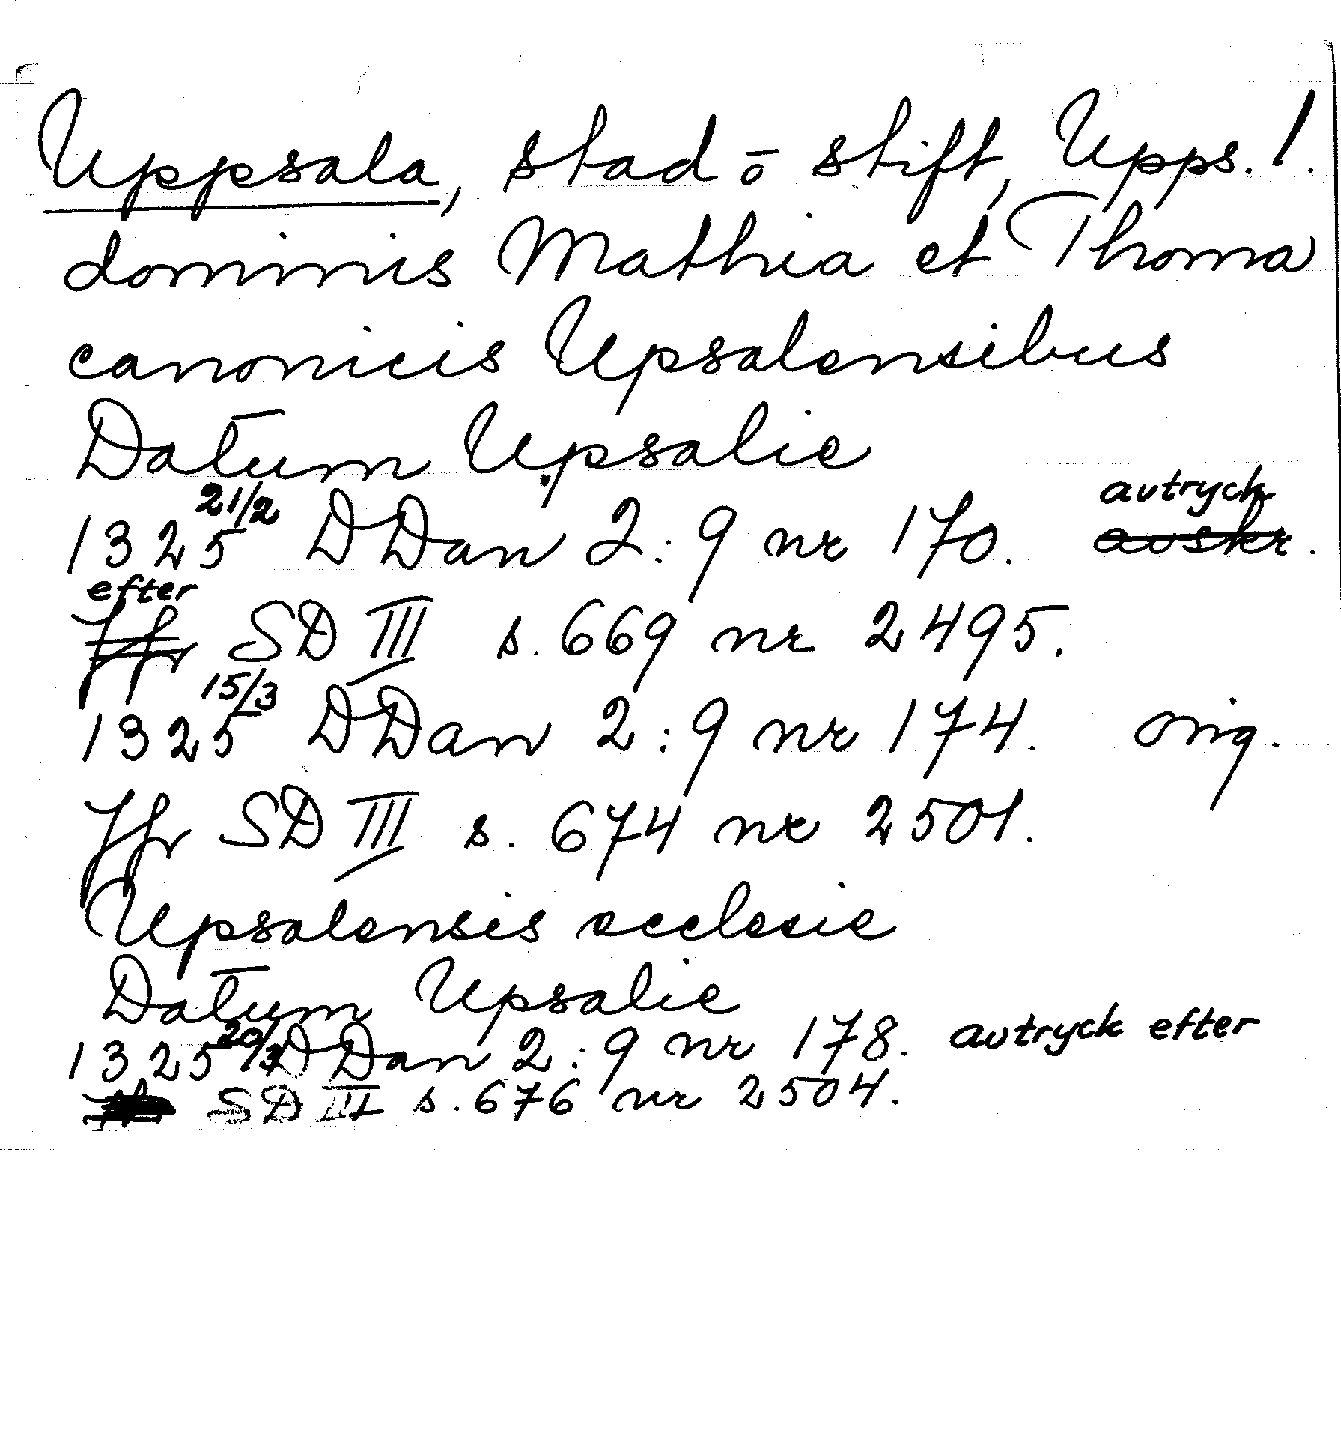 Uppsala, stad o stift, Upps. l.
dominis Mathia et Thoma
canonicis Upsalensibus
Datum Upsalie
1325 21/2 DDan 2:9 nr 170. avtryck avskr.
efter Jfr SD III s. 669 nr 2495.
1325 15/3 DDan 2:9 nr 174. orig.
Jfr SD III s. 674 nr 2501.
Upsalensis ecclesie
Datum Upsalie
1325 20/3 DDan 2:9 nr 178. avtryck efter
SD III s. 676 nr 2504.